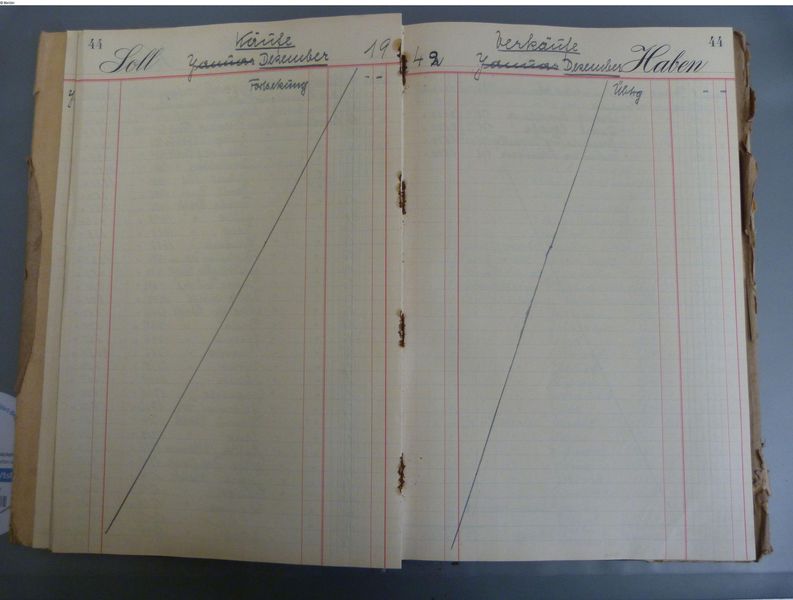 44 Soll Käufe 19
Januar Dezember
Fortsetzung - -
42 Verkäufe Haben 44
Januar Dezember
Übtrg - -